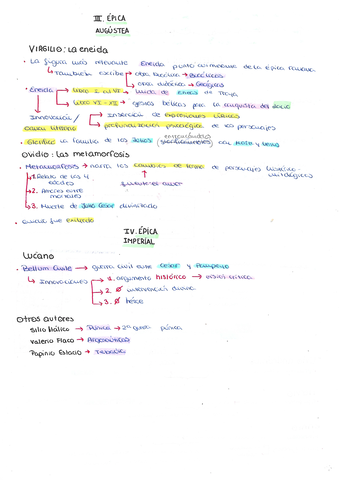 III. ÉPICA
AUGÚSTEA
VIRGILIO: La eneida
• La figura más relevante Eneida punto culminante de la épica romana
↳ También escribe → obra bucólica → Bucólicas
↳ obra didáctica → Geórgicas
• Eneida → Libro I al VI → huida de Eneas de Troya
→ Libro VII - XII → gestas bélicas para la conquista del Lacio
Innovación/ → Inserción de expresiones líricas
→ profundización psicológica de los personajes
• Glorifica la familia de los Julios con Marte y Venus
Ovidio: Las metamorfosis
• Metamorfosis → narra los cambios de forma de personajes
mitológicos
→ 1. Relato de las 4
edades
→ 2. Amores entre
mortales
→ 3. Muerte de Julio César divinizado
• Ovidio fue exiliado
IV. ÉPICA
IMPERIAL
Lucano
• Bellum civile → guerra civil entre César y Pompeyo
↳ Innovaciones → 1. argumento histórico →
→ 2. Ø intervención divina
→ 3. Ø héroe
Otros autores
Silio Itálico → Púnica → 2ª guerra púnica
Valerio Flaco → Argonáuticas
Papinio Estacio → Tebaida